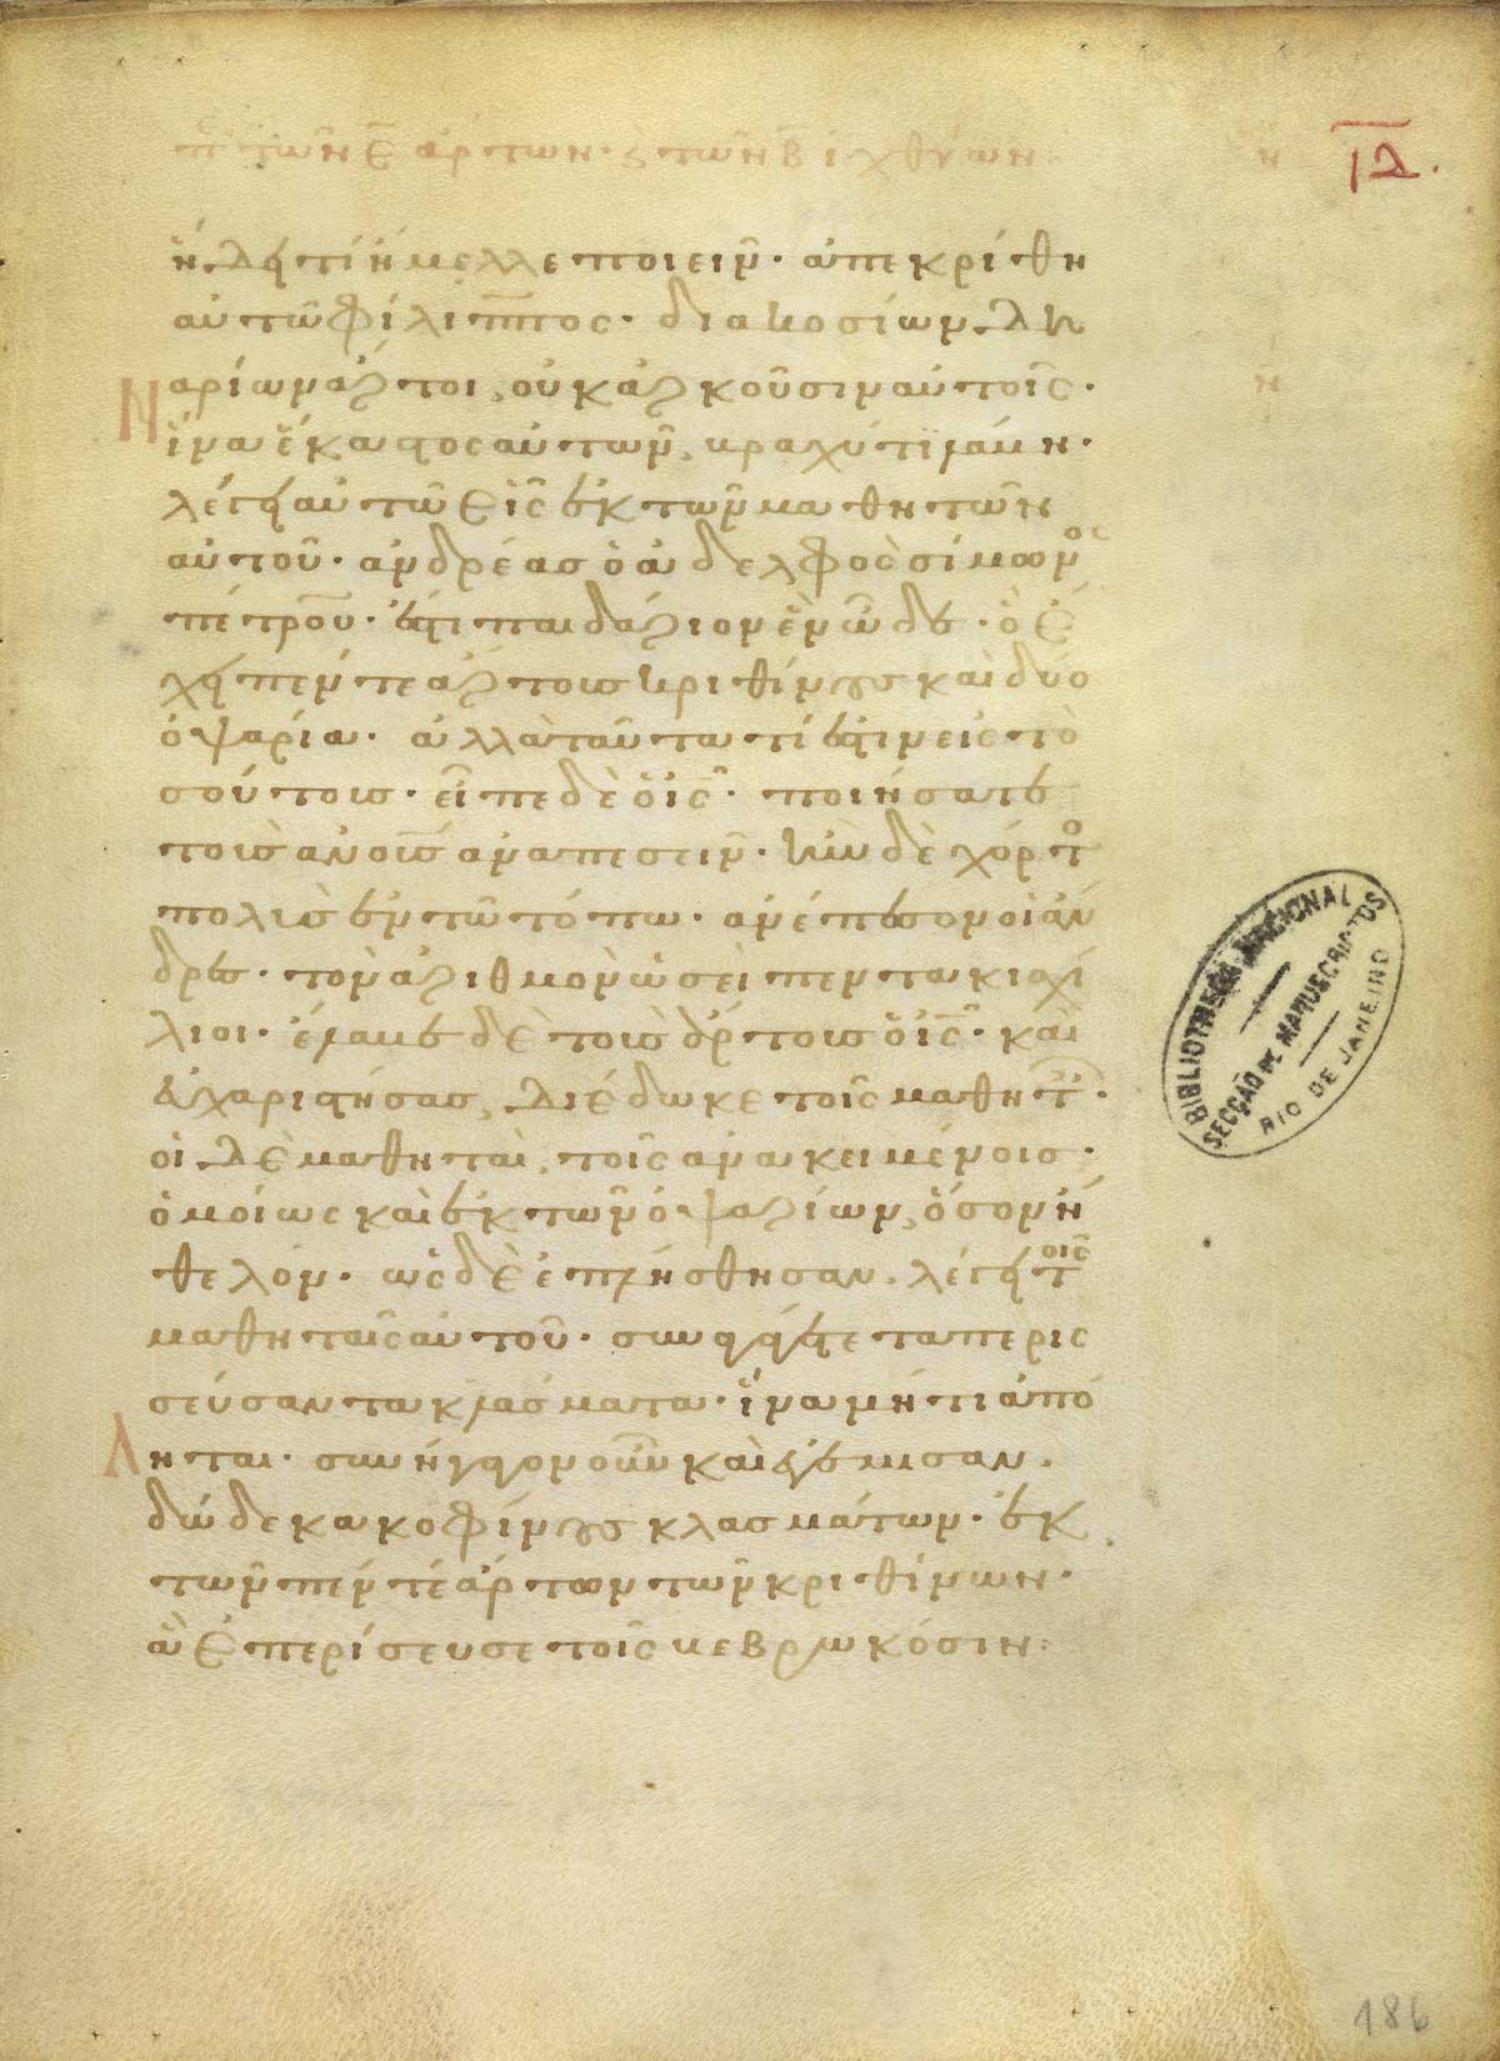 π τῶν ε̄ ἄρτων· ϛ τῶν β̄ ἰχθύων: η
ΙΔ.
ᾔδει τί ἤμελλε ποιεῖν· ἀπεκρίθη
αὐτῶ φίλιππος· διακοσίων δη
ναρίων ἄρτοι, οὐκ ἀρκοῦσιν αὐτοῖς·
ἵνα ἕκαστος αὐτῶν, βραχύ τι λάβη·
λέγει αὐτῶ εἷς ἐκ τῶν μαθητῶν
αὐτοῦ· ἀνδρέας ὁ ἀδελφὸς σίμωνος
πέτρου· ἔστι παιδάριον ἓν ὧδε· ὃ ἔ
χει πέντε ἄρτους κριθίνους καὶ δύο
ὀψάρια· ἀλλὰ ταῦτα τί ἐστιν εἰς το
σούτους· εἶπε δὲ ὁ ις· ποιήσατε
τοὺς ανους ἀναπεσεῖν· ἦν δὲ χόρτος
πολὺς ἐν τῶ τόπω· ἀνέπεσον οἱ ἄν
δρες· τὸν ἀριθμὸν ὡσεὶ πεντακισχί
λιοι· ἔλαβε δὲ τοὺς ἄρτους ὁ ις· καὶ
εὐχαριστήσας, διέδωκε τοῖς μαθητ·
οἱ δὲ μαθηταὶ, τοῖς ἀνακειμένοις·
ὁμοίως καὶ ἐκ τῶν ὀψαρίων, ὅσον ἤ
θελον· ὡς δὲ ἐπλήσθησαν. λέγει τοῖς
μαθηταῖς αὐτοῦ· συναγάγετε τὰ περις
σεύσαντα κλάσματα· ἵνα μή τι ἀπό
ληται· συνήγαγον οὖν καὶ ἐγέμισαν.
δώδεκα κοφίνους κλασμάτων· ἐκ
τῶν πέντε ἄρτων τῶν κριθίνων·
ἃ ἐπερίσευσε τοῖς βεβρωκόσιν:
BIBLIOTHECA NACIONAL
SECÇÃO DE MANUSCRIPTOS
RIO DE JANEIRO
186